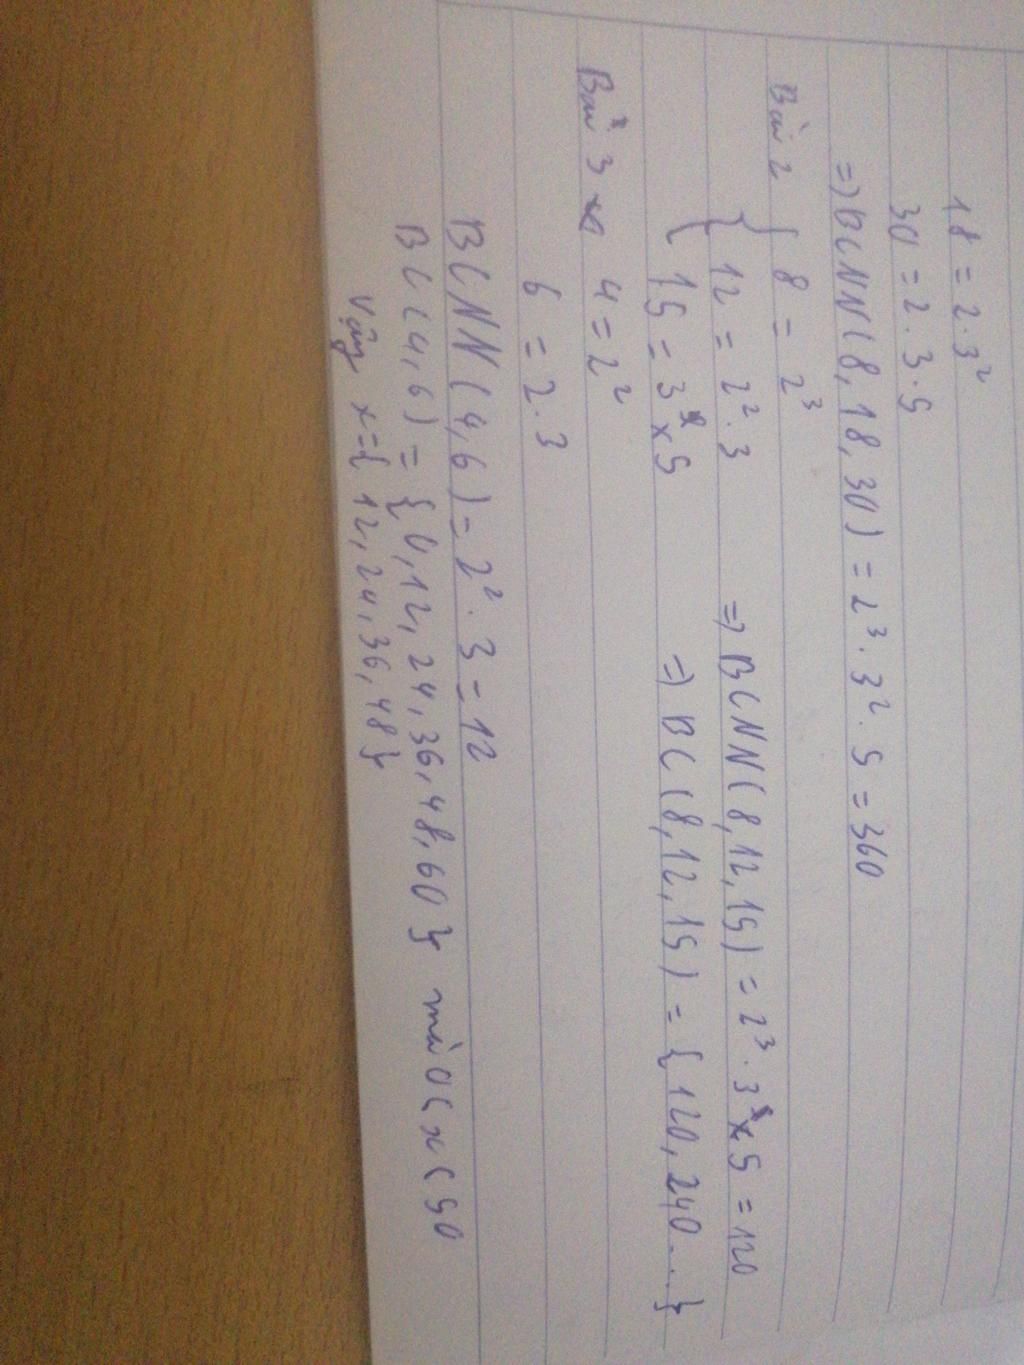 18 = 2 . 3²
30 = 2 . 3 . 5
=> BCNN( 8, 18, 30 ) = 2³ . 3² . 5 = 360
Bài 2 { 8 = 2³
12 = 2² . 3 => BCNN( 8, 12, 15 ) = 2³ . 3 x 5 = 120
15 = 3 x 5 => BC ( 8, 12, 15 ) = { 120, 240 ... }
Bài 3 4 = 2²
6 = 2 . 3
BCNN ( 4, 6 ) = 2² . 3 = 12
BC ( 4, 6 ) = { 0, 12, 24, 36, 48, 60 } mà 0 < x < 50
Vậy x = { 12, 24, 36, 48 }